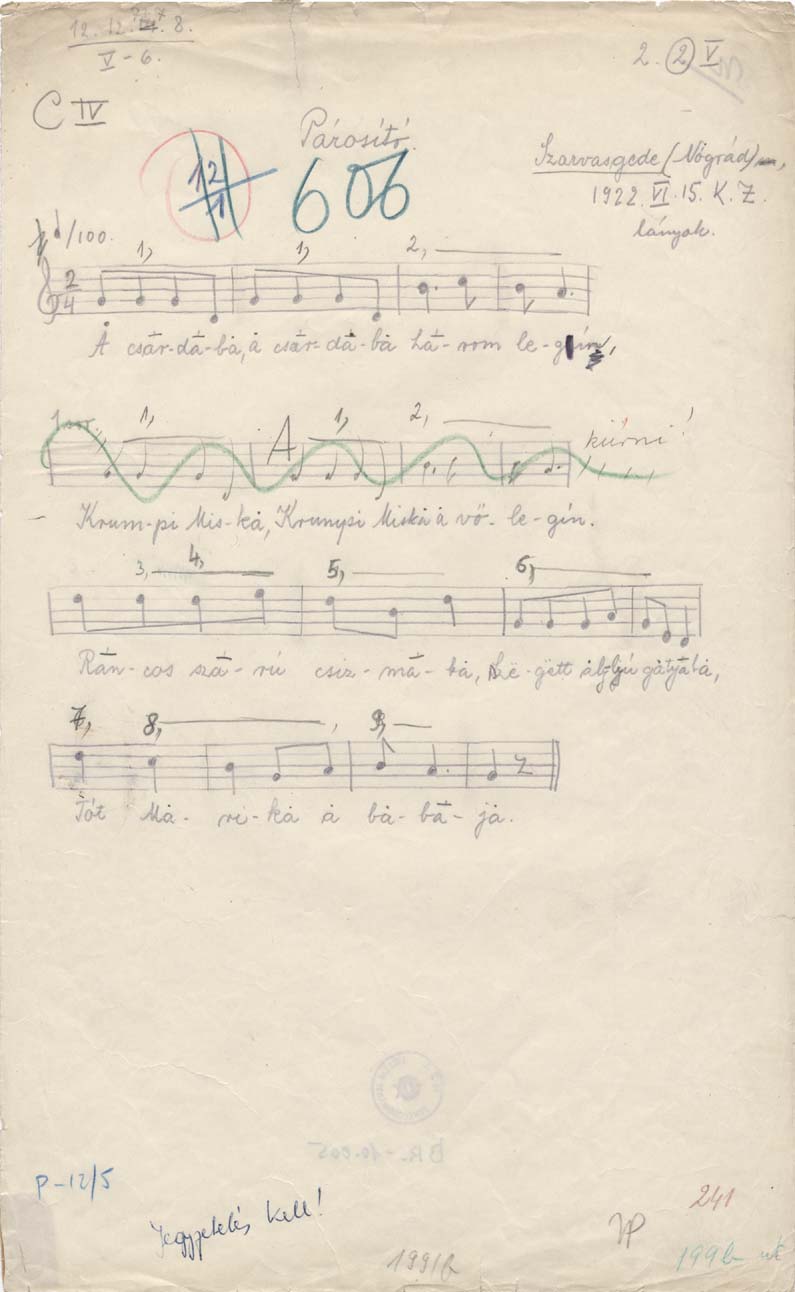 12. 12. 7. 8.
V - 6.
2. 2 V
C IV
Párosító.
12
1
606
Szarvasgede (Nógrád),
1922. VI. 15. K. Z.
lányok.
/100.
1, 1, 2,
2
4
Ȧ csār-dā-bȧ, ȧ csār-dȧ-bȧ hā-rom le-gín,
1, A 1, 2, kiírni!
Krum-pi Mis-kȧ, Krumpi Miskȧ ȧ vő-le-gín.
3, 4, 5, 6,
Rān-cos szā-rú csiz-mā-bȧ, Szë-gëtt ȧljjú gȧtyābȧ,
7, 8, 9,
Tót Mȧ-ri-kȧ ȧ bȧ-bā-jȧ.
BR-10.005
P-12/5
Jegyzetelés kell!
241
1991b
VP
199b